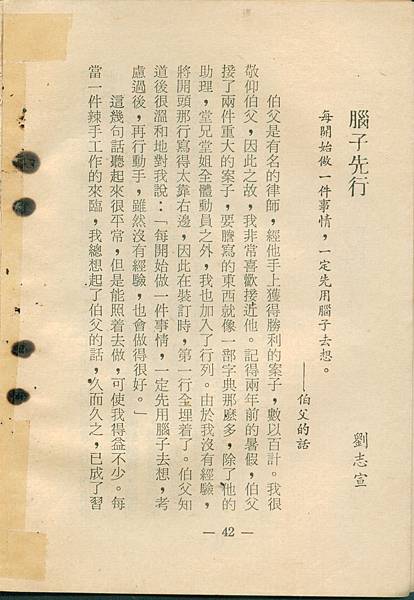 腦子先行
劉志宣
每開始做一件事情，一定先用腦子去想。
——伯父的話
伯父是有名的律師，經他手上獲得勝利的案子，數以百計。我很
敬仰伯父，因此之故，我非常喜歡接近他。記得兩年前的暑假，伯父
接了兩件重大的案子，要謄寫的東西就像一部字典那麼多，除了他的
助理，堂兄堂姐全體動員之外，我也加入了行列。由於我沒有經驗，
將開頭那行寫得太靠右邊，因此在裝訂時，第一行全埋着了。伯父知
道後很溫和地對我說：「每開始做一件事情，一定先用腦子去想，考
慮過後，再行動手，雖然沒有經驗，也會做得很好。」
這幾句話聽起來很平常，但是能照着去做，可使我得益不少。每
當一件辣手工作的來臨，我總想起了伯父的話，久而久之，已成了習
— 42 —